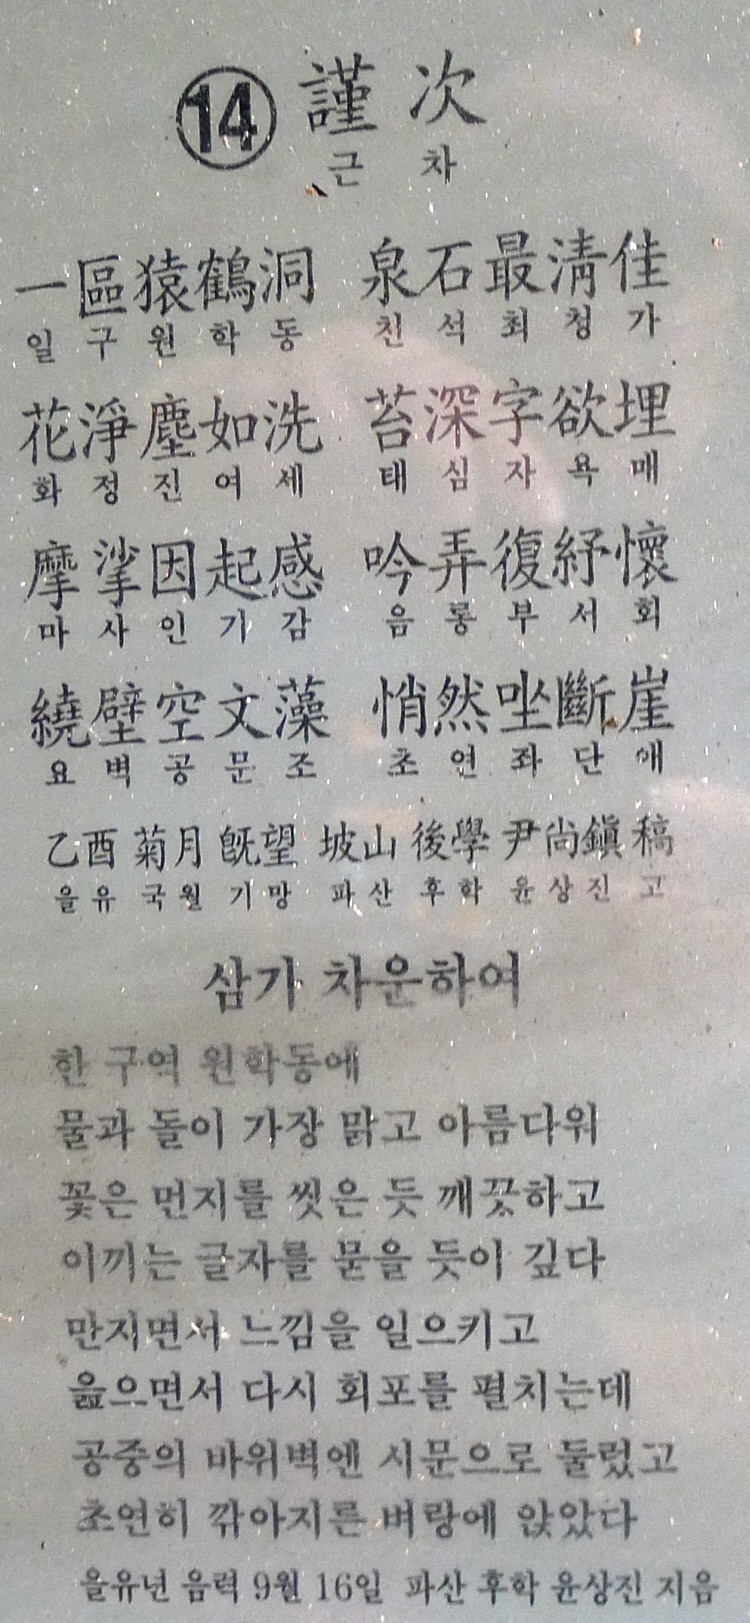 ⑭ 謹次
근 차
一區猿鶴洞 泉石最淸佳
일 구 원 학 동 친 석 최 청 가
花淨塵如洗 苔深字欲埋
화 정 진 여 세 태 심 자 욕 매
摩挲因起感 吟弄復紓懷
마 사 인 기 감 음 롱 부 서 회
繞壁空文藻 悄然坐斷崖
요 벽 공 문 조 초 연 좌 단 애
乙酉 菊月 旣望 坡山 後學 尹尙鎭 稿
을유 국월 기망 파산 후학 윤상진 고
삼가 차운하여
한 구역 원학동에
물과 돌이 가장 맑고 아름다워
꽃은 먼지를 씻은 듯 깨끗하고
이끼는 글자를 묻을 듯이 깊다
만지면서 느낌을 일으키고
읊으면서 다시 회포를 펼치는데
공중의 바위벽엔 시문으로 둘렀고
초연히 깎아지른 벼랑에 앉았다
을유년 음력 9월 16일 파산 후학 윤상진 지음